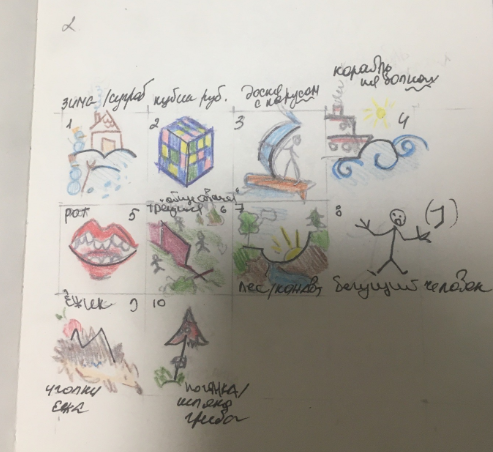 2
зима /сугроб
кубик руб.
доска
с парусом
корабль
на волнах
1
2
3
4
рот 5
6 7
8
(-J)
лес/
бегущий человек
ёжик 9
10
иголки
ежа
поганка/
шляпа
гриба